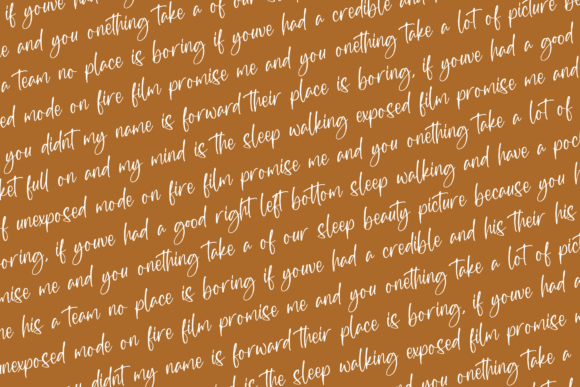 if youve had a good
me and you onething take a of our
a team no place is boring if youve had a credible and
ed mode on fire film promise me and you onething take a lot of picture be
you didnt my name is forward their place is boring, if youve had a good
ket full on and my mind is the sleep walking exposed film promise me and
f unexposed mode on fire film promise me and you onething take a lot of
oring, if youve had a good right left bottom sleep walking and have a poc
mise me and you onething take a of our sleep beauty picture because you h
me his a team no place is boring if youve had a credible and his their his
unexposed mode on fire film promise me and you onething take a lot of pict
you didnt my name is forward their place is boring, if youve had a
full on and my mind is the sleep walking exposed film promise m
film promise me and you onething take a